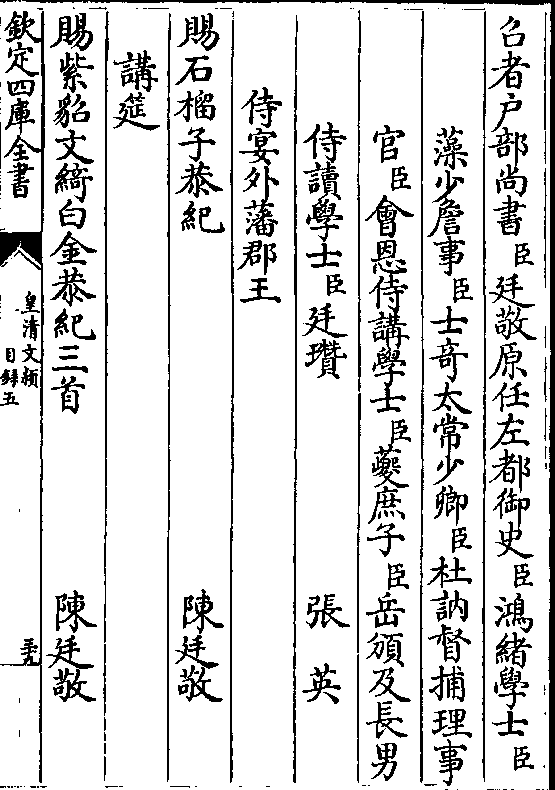 召者户部尚書臣廷敬原任左都御史臣鴻緒學士臣
藻少詹事臣士奇太常少卿臣杜訥督捕理事
官臣會恩侍講學士臣夔庶子臣岳頒及長男
侍讀學士臣廷瓚 張英
侍宴外藩郡王
賜石榴子恭紀 陳廷敬
講筵
賜紫貂文綺白金恭紀三首 陳廷敬
欽定四庫全書 皇清文穎 目録五 三九